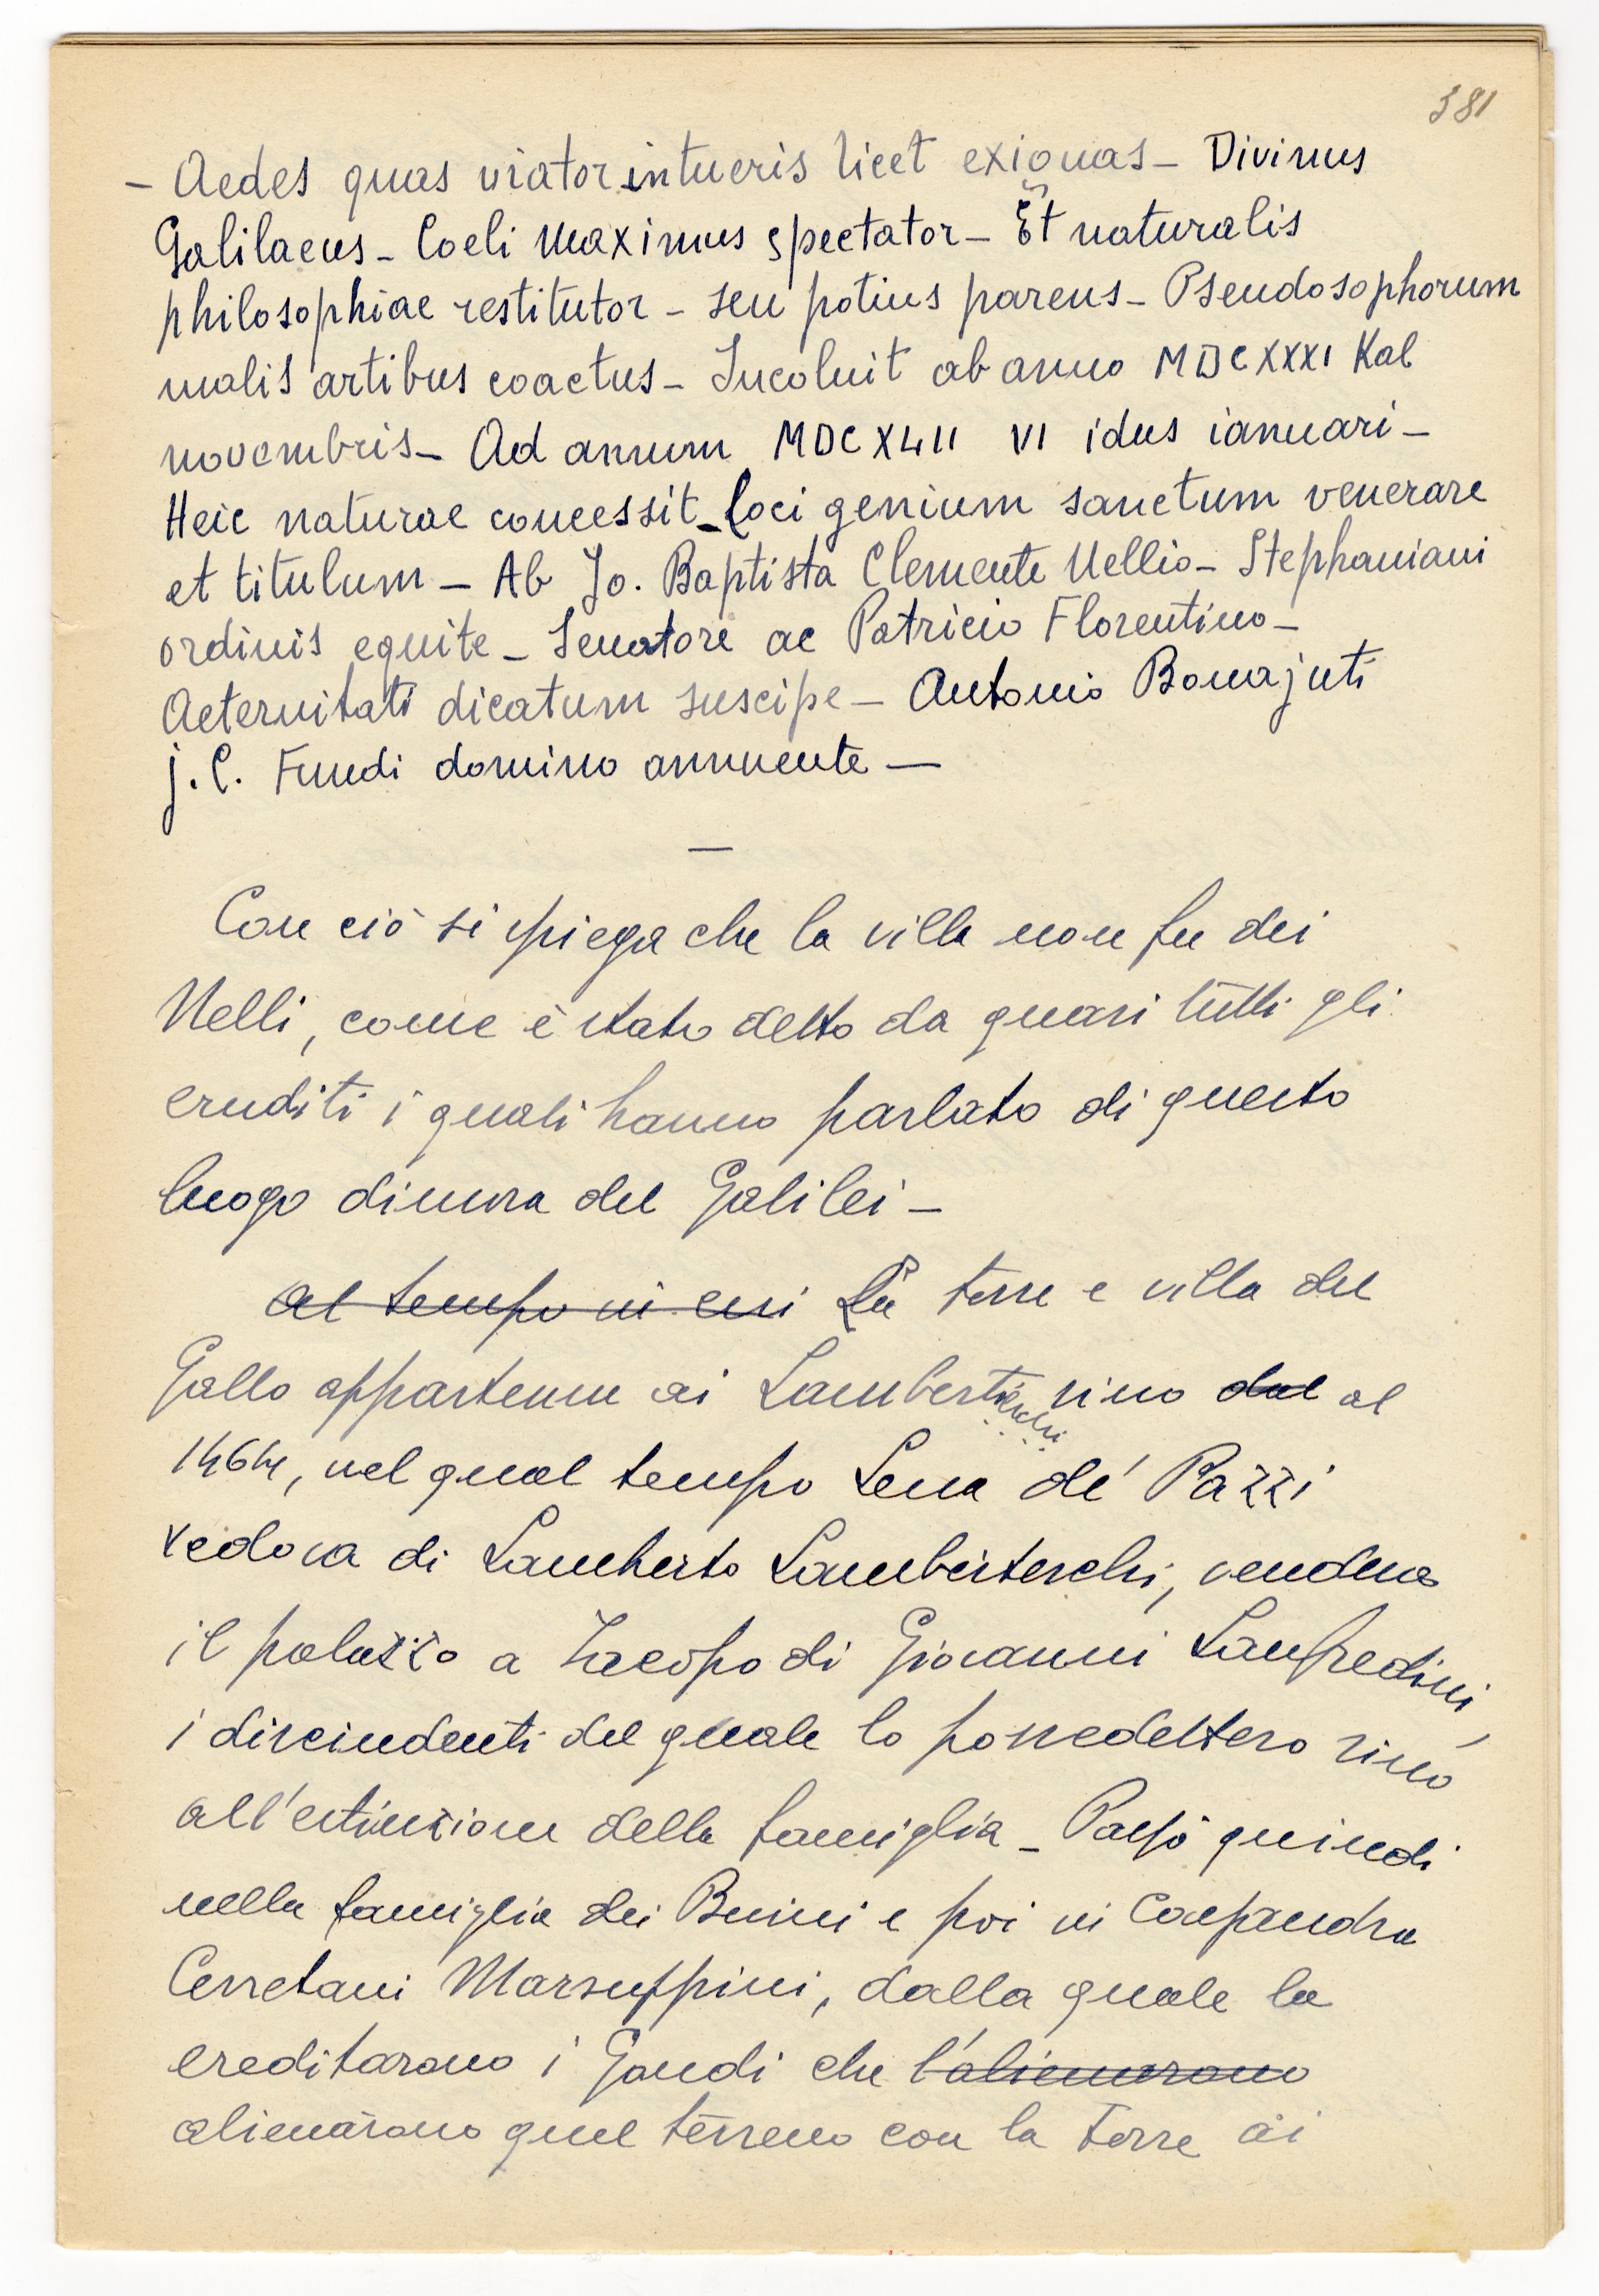 381
- Aedes quas viator intueris licet exiguas - Divinus
Galilaeus - Coeli maximus spectator - Et naturalis
philosophiae restitutor - seu potius parens - Pseudosophorum
malis artibus coactus - Incoluit ab anno MDCXXXI Kal
novembris - Ad annum MDCXLII VI idus ianuari -
Heic naturae concessit - loci genium sanctum venerare
et titulum - Ab Jo. Baptista Clemente Nellio - Stephaniani
ordinis equite - Senatore ac Patricio Florentino -
Aeternitati dicatum suscipe - Antonio Bonajuti
j. C. Fundi domino annuente -
Con ciò si spiega che la villa non fu dei
Nelli, come è stato detto da quasi tutti gli
eruditi i quali hanno parlato di questo
luogo dimora del Galilei -
al tempo in cui La torre e villa del
Gallo appartenne ai Lamberteschi sino dal al
1464, nel qual tempo Lena dé Pazzi
vedova di Lamberto Lamberteschi, vendeva
il palazzo a Iacopo di Giovanni Lanfredini,
i discendenti del quale lo possedettero sino
all'estinzione della famiglia - Passò quindi
nella famiglia dei Buini e poi in Cassandra
Cerretani Marsuppini, dalla quale la
ereditarono i Gondi che l'alienarono
alienarono quel terreno con la Torre ai